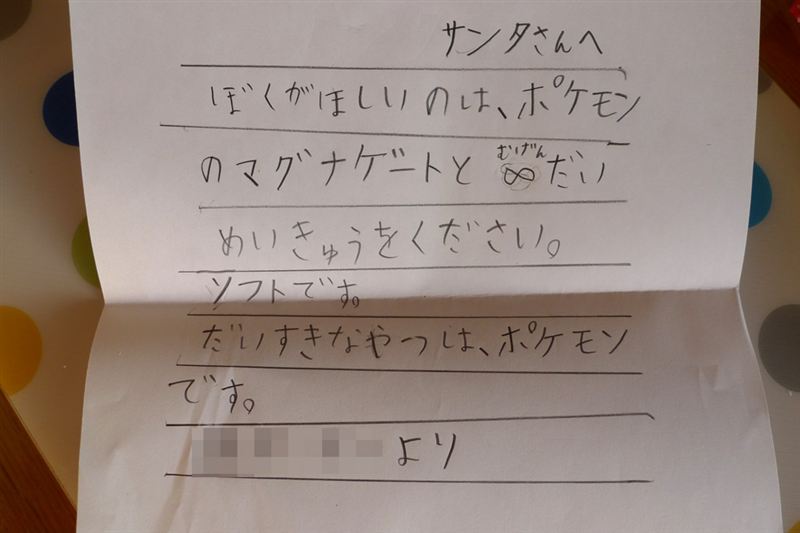 サンタさんへ
ぼくがほしいのは、ポケモン
のマグナゲートと ∞だい
むげん
めいきゅうをください。
ソフトです。
だいすきなやつは、ポケモン
です。
より